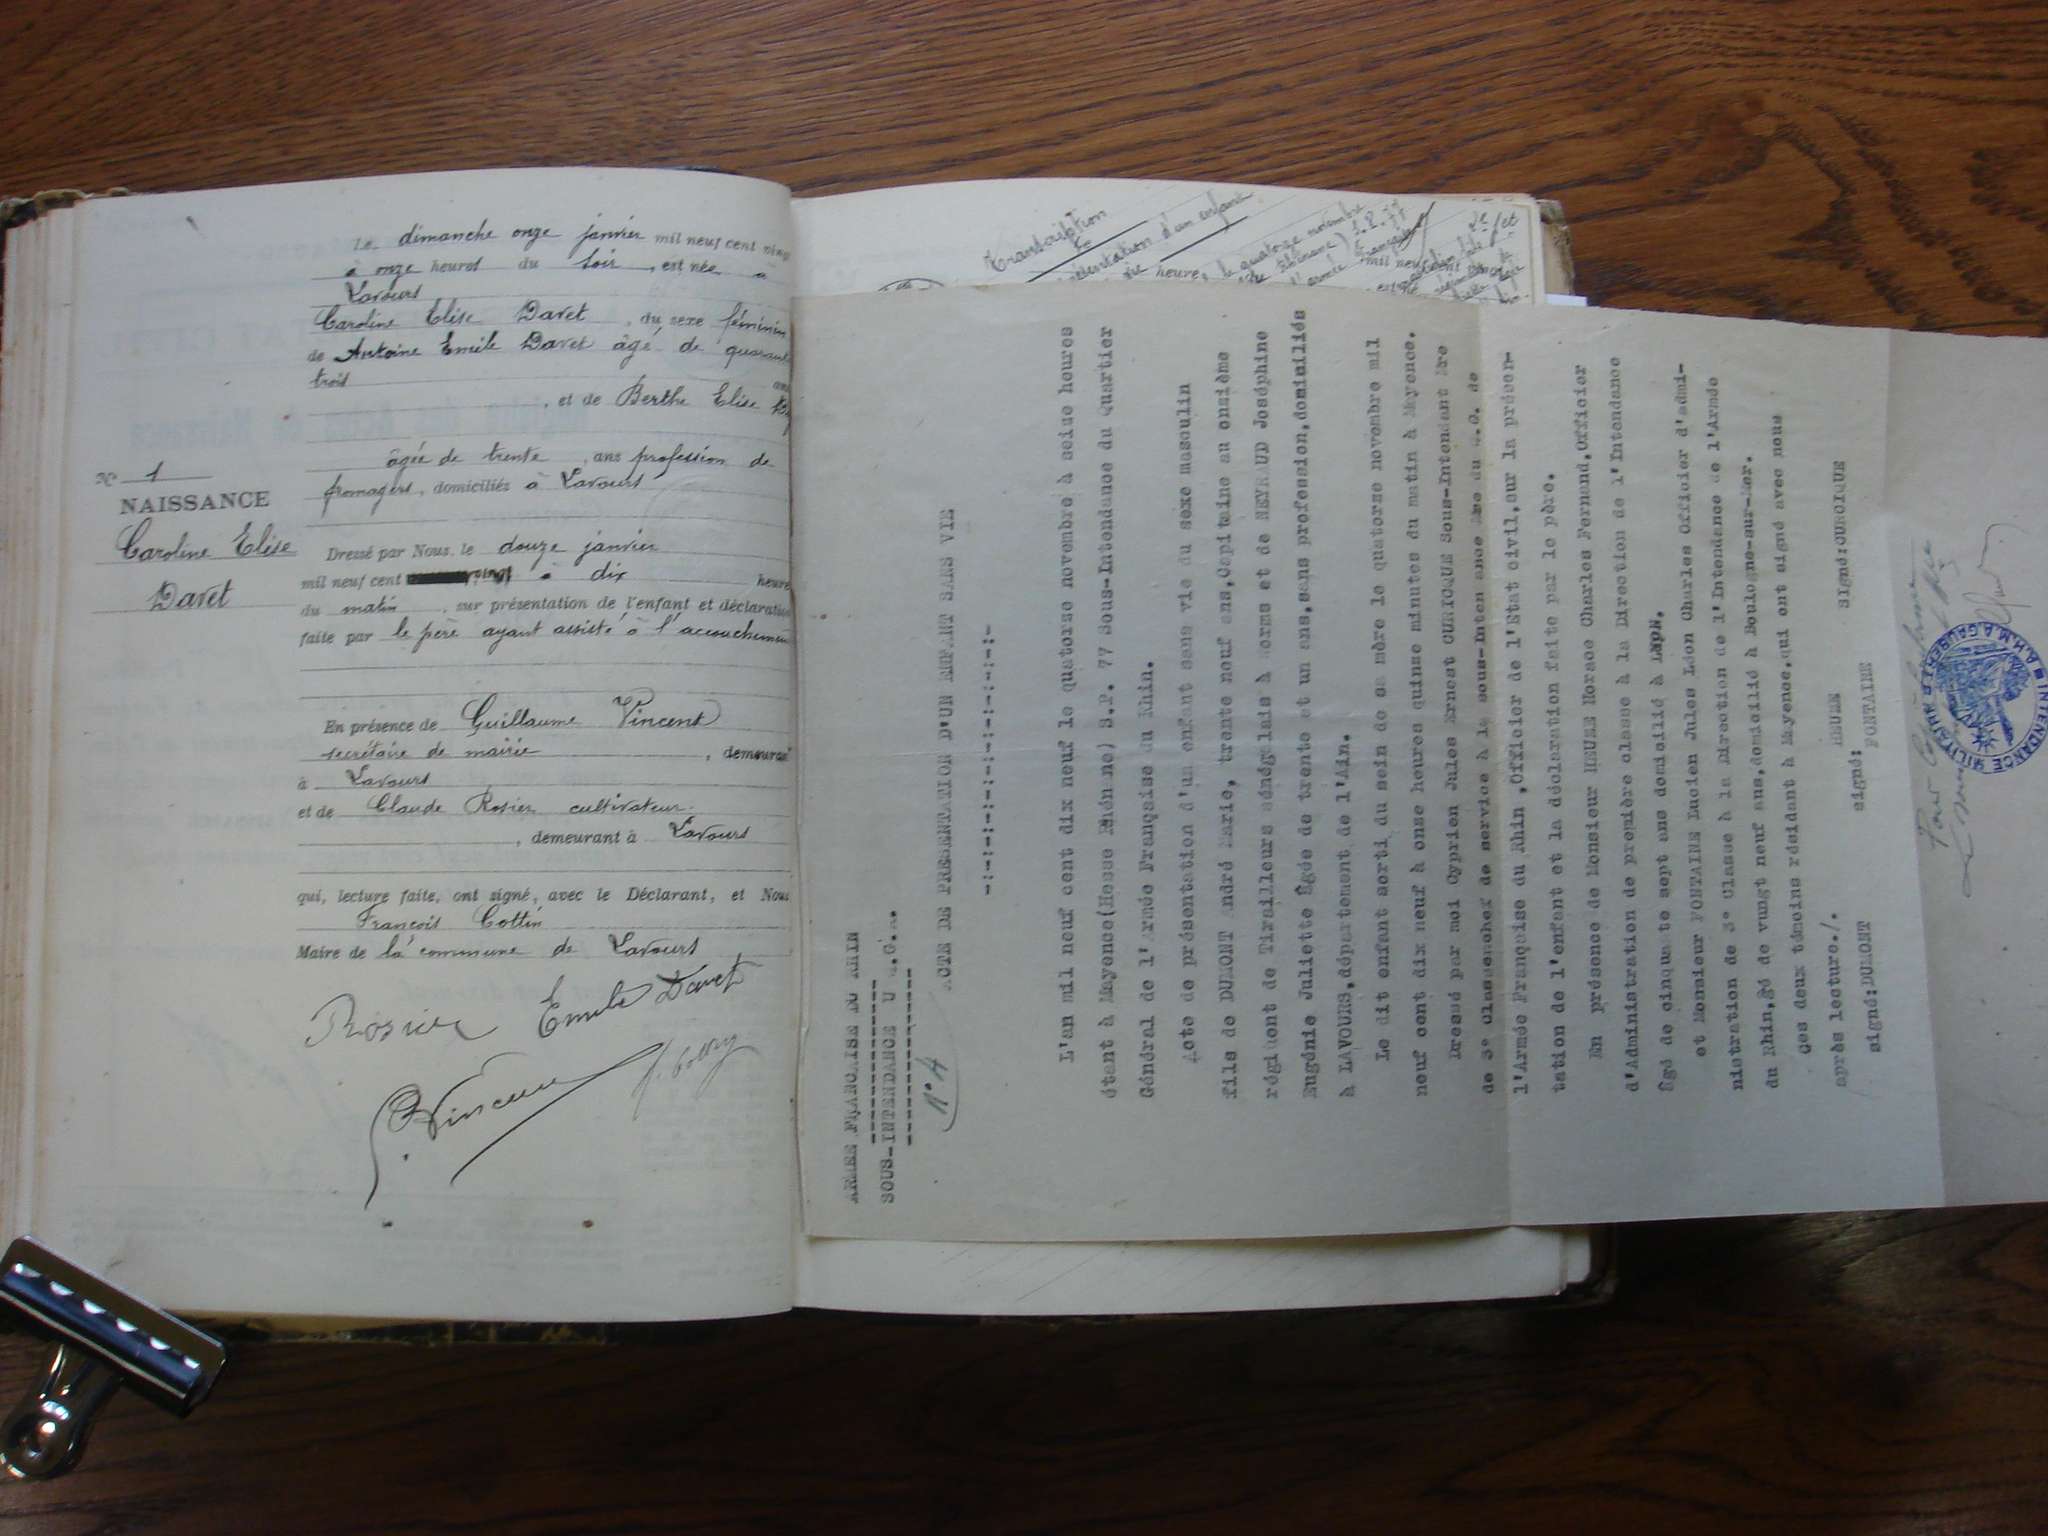 Le dimanche onze janvier mil neuf cent vingt
à onze heures du soir, est née à
Lavours
Caroline Elise Davet, du sexe féminin
de Antoine Emile Davet âgé de quarante
trois ans
, et de Berthe Elise
âgée de trente, ans profession de
fromagers, domiciliés à Lavours
N° 1
NAISSANCE
Caroline Elise
Davet
Dressé par Nous, le douze janvier
mil neuf cent vingt à dix heure
du matin, sur présentation de l'enfant et déclaration
faite par le père ayant assisté à l'accouchement
En présence de Guillaume Vincent
secrétaire de mairie, demeurant
à Lavours
et de Claude Rosier cultivateur
, demeurant à Lavours
qui, lecture faite, ont signé, avec le Déclarant, et Nous
François Cottin
Maire de la commune de Lavours
Rosier Emile Davet
G. Vincent f. Cottin
Transcription
présentation d'un enfant
heure, le quatorze novembre
mil neuf cent
ARMEE FRANCAISE DU RHIN
SOUS-INTENDANCE U Q.G.
N° 4
ACTE DE PRESENTATION D'UN ENFANT SANS VIE
-:-:-:-:-:-:-:-:-:-
L'an mil neuf cent dix neuf le quatorze novembre à seize heures
étant à Mayence(Hesse Rhénane) S.P. 77 Sous-Intendance du Quartier
Général de l'Armée Française du Rhin.
Acte de présentation d'un enfant sans vie du sexe masculin
fils de DUMONT André Marie, trente neuf ans,Capitaine au onzième
régiment de Tirailleurs sénégalais à Worms et de NEYRAUD Joséphine
Eugénie Juliette âgée de trente et un ans,sans profession,domiciliés
à LAVOURS,département de l'Ain.
Le dit enfant sorti du sein de sa mère le quatorze novembre mil
neuf cent dix neuf à onze heures quinze minutes du matin à Mayence.
Dressé par moi Cyprien Jules Ernest CURICQUE Sous-Intendant Mre
de 3° Classe chef de service à la sous-Inten ance Mre du Q.G. de
l'Armée Française du Rhin ,Officier de l'Etat civil,sur la présen-
tation de l'enfant et la déclaration faite par le père.
En présence de Monsieur HEUZE Horace Charles Fernand,Officier
d'Administration de première classe à la Direction de l'Intendance
âgé de cinquante sept ans domicilié à LYON.
et Monsieur FONTAINE Lucien Jules Léon Charles Officier d'admi-
nistration de 3° Classe à la Direction de l'Intendance de l'Armée
du Rhin,âgé de vungt neuf ans,domicilié à Boulogne-sur-Mer.
Ces deux témoins résidant à Mayence,qui ont signé avec nous
après lecture./.
signé:DUMONT signé: HEUZE FONTAINE signé:CURCIQUE
Pour Copie conforme
INTENDANCE MILITAIRE